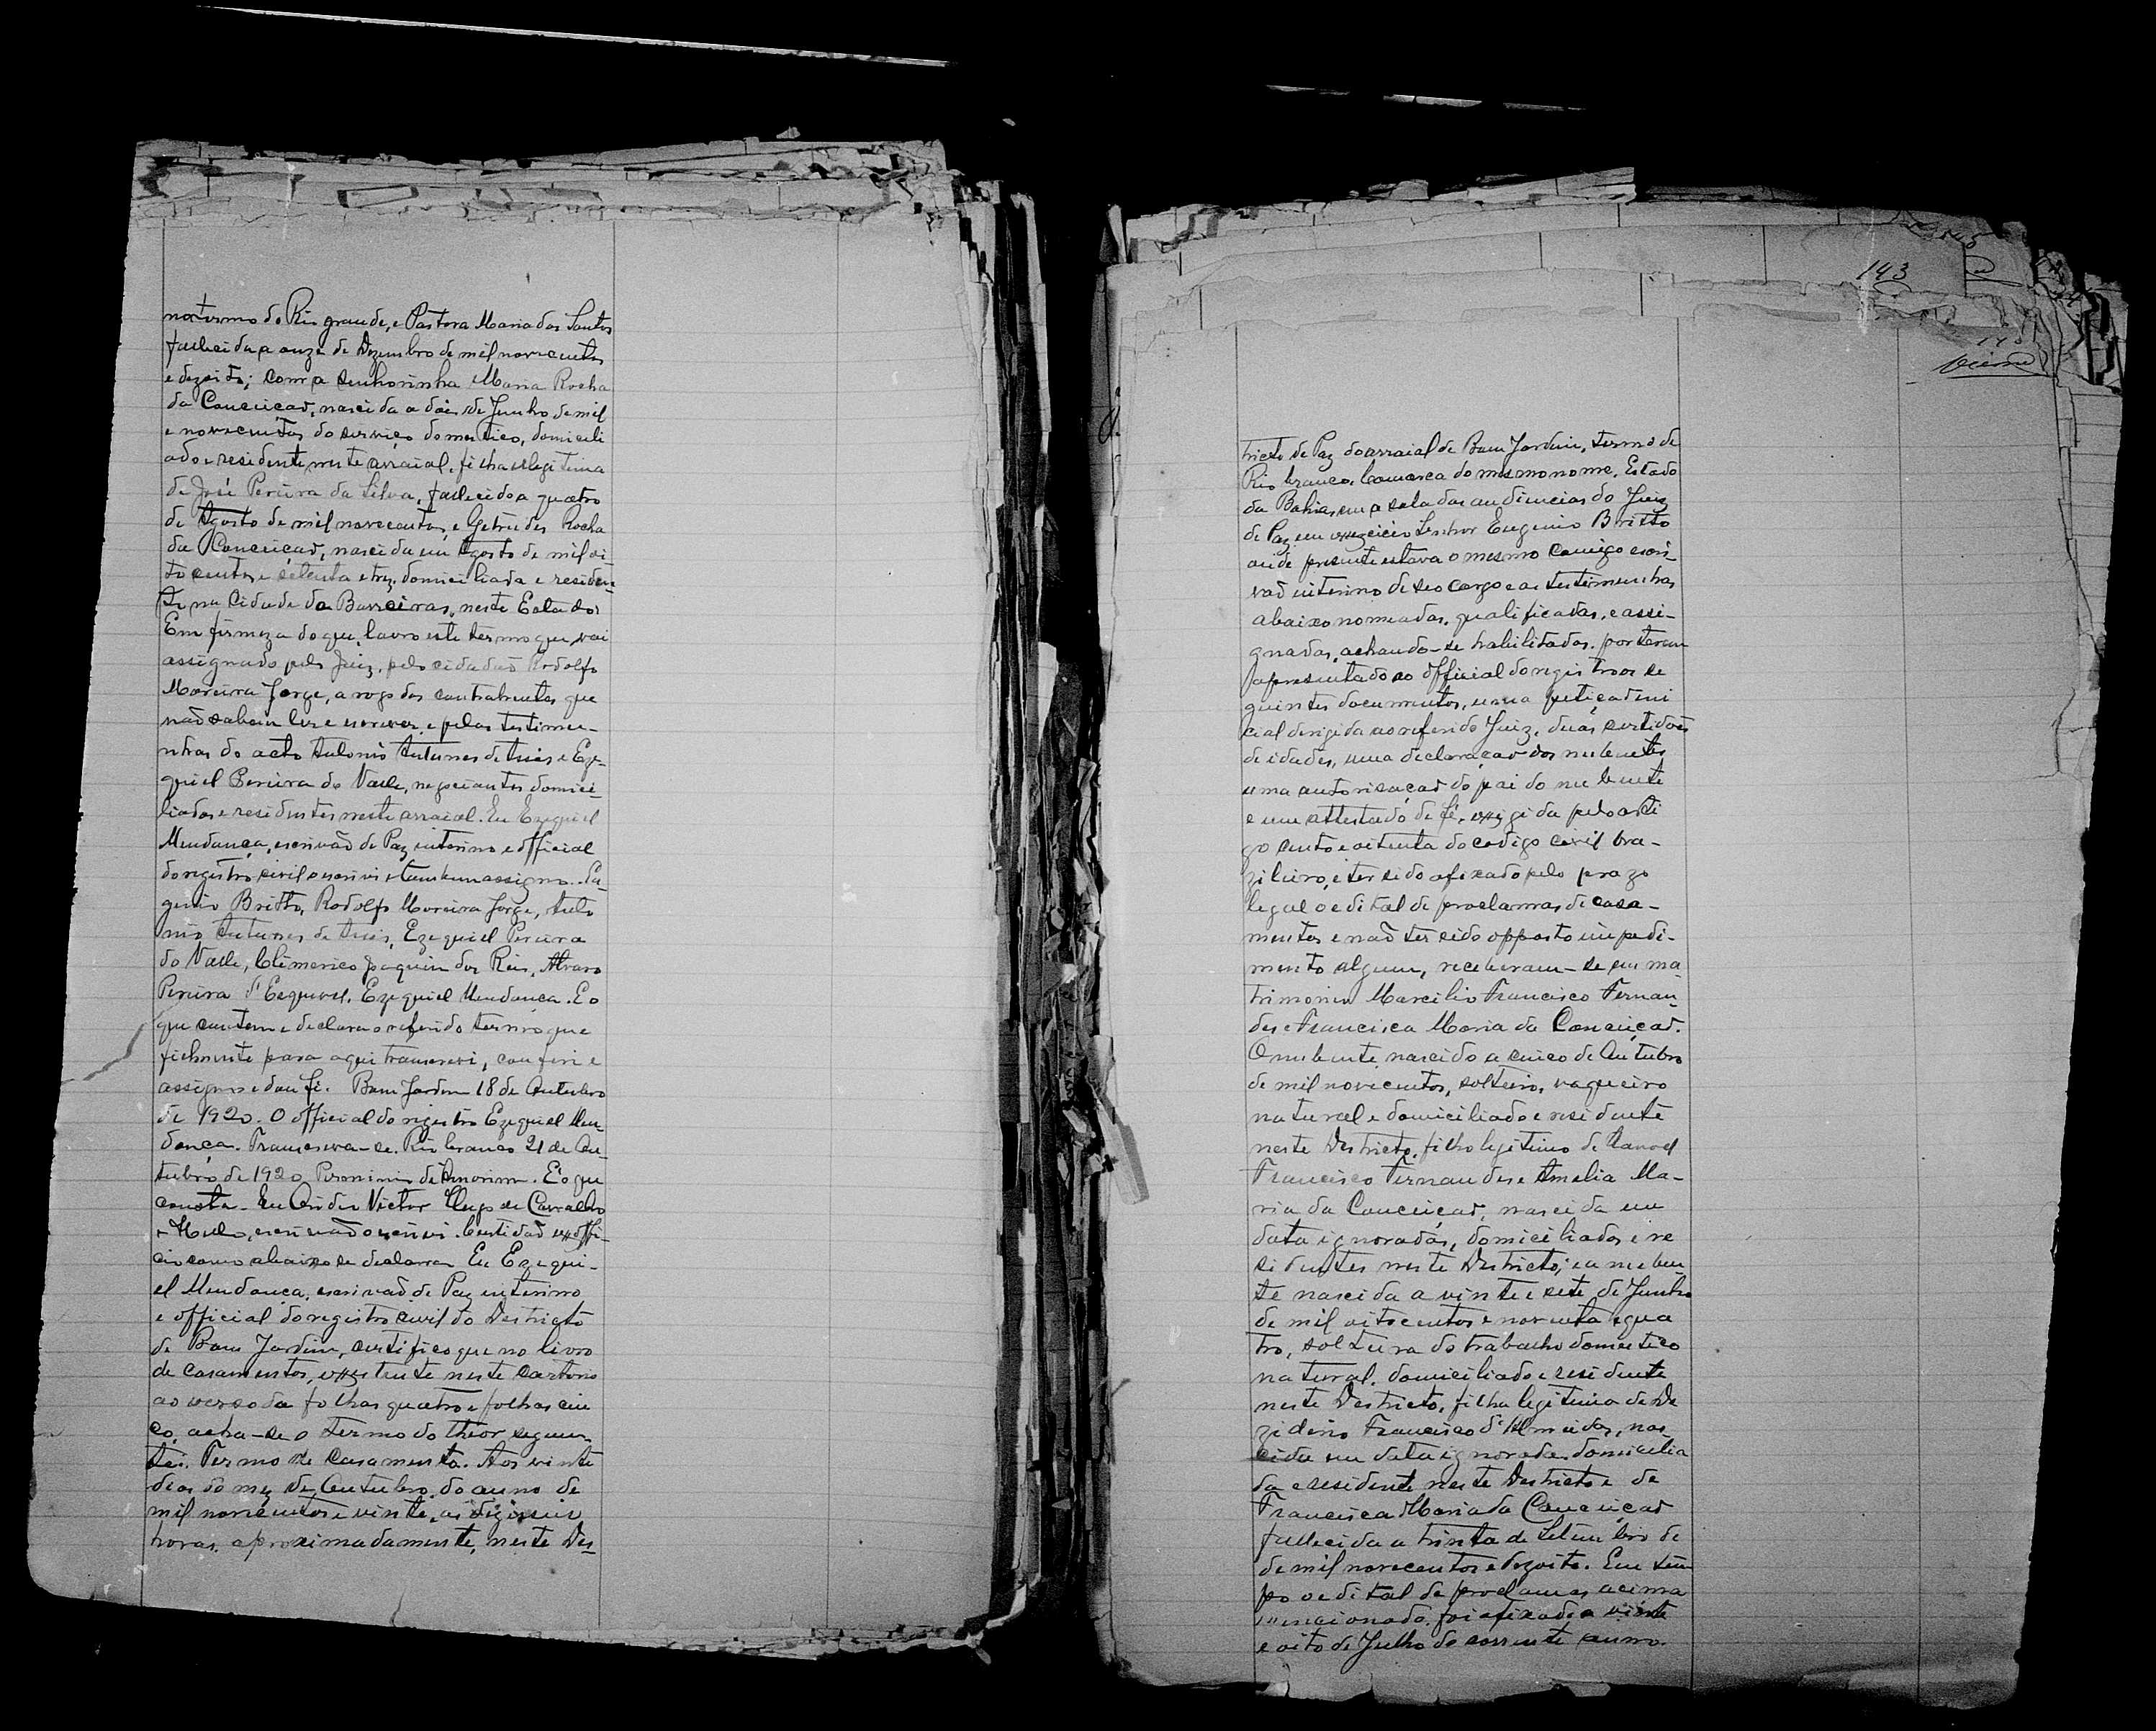 no termo do Rio grande, e Pastora Maria dos Santos
fallecida a onze de Dezembro de mil novecentos
e dezoito; com a senhorinha Maria Rocha
da Conceiçaõ, nascida a dois de Junho de mil
e novecentos do serviço domestico, domicili
ado e residente neste arraial, filha legitima
de José Pereira da Silva, fallecido a quatro
de Agosto de mil novecentos, e Getrudes Rocha
da Conceiçaõ, nascida em Agosto de mil oi
tocentos e setenta e trez, domiciliada e residen-
te na Cidade da Barreiras, neste Estado.
Em firmeza do que, lavro este termo que vai
assignado pelo Juiz, pelo cidadaõ Rodolfo
Moreira Jorge, a rogo dos contrahentes que
naõ sabem ler e escrever, e pelas testimu-
nhas do acto Antonio Antunes de Assis e Eze-
quiel Pereira do Valle, negociantes domici-
liados e residentes neste arraial. Eu Ezequiel
Mendonça, escrivaõ de Paz interino e official
do registro civil o escrevi e tambem assigno. Eu-
genio Britto, Rodolfo Moreira Jorge, Anto
nio Antunes de Assis, Ezequiel Pereira
do Valle, Climerico Joaquim dos Reis, Alvaro
Pereira d'Esquivel, Ezequiel Mendonça. E o
que contem e declara o referido termo que
fielmente para aqui transcrevi, conferi e
assigno e dou fé. Bom Jardim 18 de Outubro
de 1920. O official do registro Ezequiel Men-
donça. Transcreva-se. Rio branco 21 de Ou-
tubro de 1920 Peronimo de Amorim. É o que
consta. Eu Victor Hugo de Carvalho
e Mello, escrivaõ o escrevi. Certidaõ exoffi-
cio como abaixo se declara Eu Ezequi-
el Mendonça, escrivaõ de Paz interino
e official do registro civil do Destricto
de Bom Jardim, certifico que no livro
de casamentos, existente neste cartorio
ao verso da folhas quatro e folhas cin
co, acha-se o termo do theor seguin-
te: Termo de Casamento. Aos vinte
dias do mez de Outubro, do anno de
mil novecentos e vinte, as dizeseis
horas, aproximadamente, neste Des-
143
tricto de Paz do arraial de Bom Jardim, termo de
Rio branco, Comarca do mesmo nome, Estado
da Bahia, em a sala das audiencias do Juiz
de Paz em exzercicio Senhor Eugenio Britto
onde presente estava o mesmo comigo escri-
vaõ interino de seo cargo e as testimunhas
abaixo nomeadas, qualificadas, e assi-
gnadas, achando-se habilitados, por terem
apresentado ao official do registro os se
guintes documentos, uma petiçaõ ini
cial dirigida ao referido Juiz, duas certidoẽs
de idades, uma declaraçaõ dos nubentes
uma autorisaçaõ do pai do nubente
e um attestado de fé, exzigida pelo arti
go cento e oitenta do codigo civil bra-
zileiro, e ter sido afixado pelo prazo
legal o edital de proclamas de casa-
mentos e naõ ter sido opposto impedi-
mento algum, receberam-se em ma-
trimonio Marcilio Francisco Fernan-
des e Francisca Maria da Conceiçaõ.
O nubente nascido a cinco de Outubro
de mil novecentos, solteiro, vaqueiro
natural e domiciliado e residente
neste Destricto, filho legitimo de Manoel
Francisco Fernandes e Amelia Ma-
ria da Conceiçaõ, nascida em
data ignoradas, domiciliados e re
sidentes neste Destricto; e a nuben-
te nascida a vinte e sete de Junho
de mil oitocentos e noventa e qua
tro, solteira do trabalho domestico
natural, domiciliado e residente
neste Destricto, filha legitima de De
ziderio Francisco d'Almeida, nas-
cida em data ignorada, domicilia
da e residente neste Destricto e de
Francisca Maria da Conceiçaõ
fallecida a trinta de Setembro de
de mil novecentos e dezoito. Em tem
po o edital de proclamas acima
mencionado, foi afixado a vinte
e oito de Julho do corrente anno.